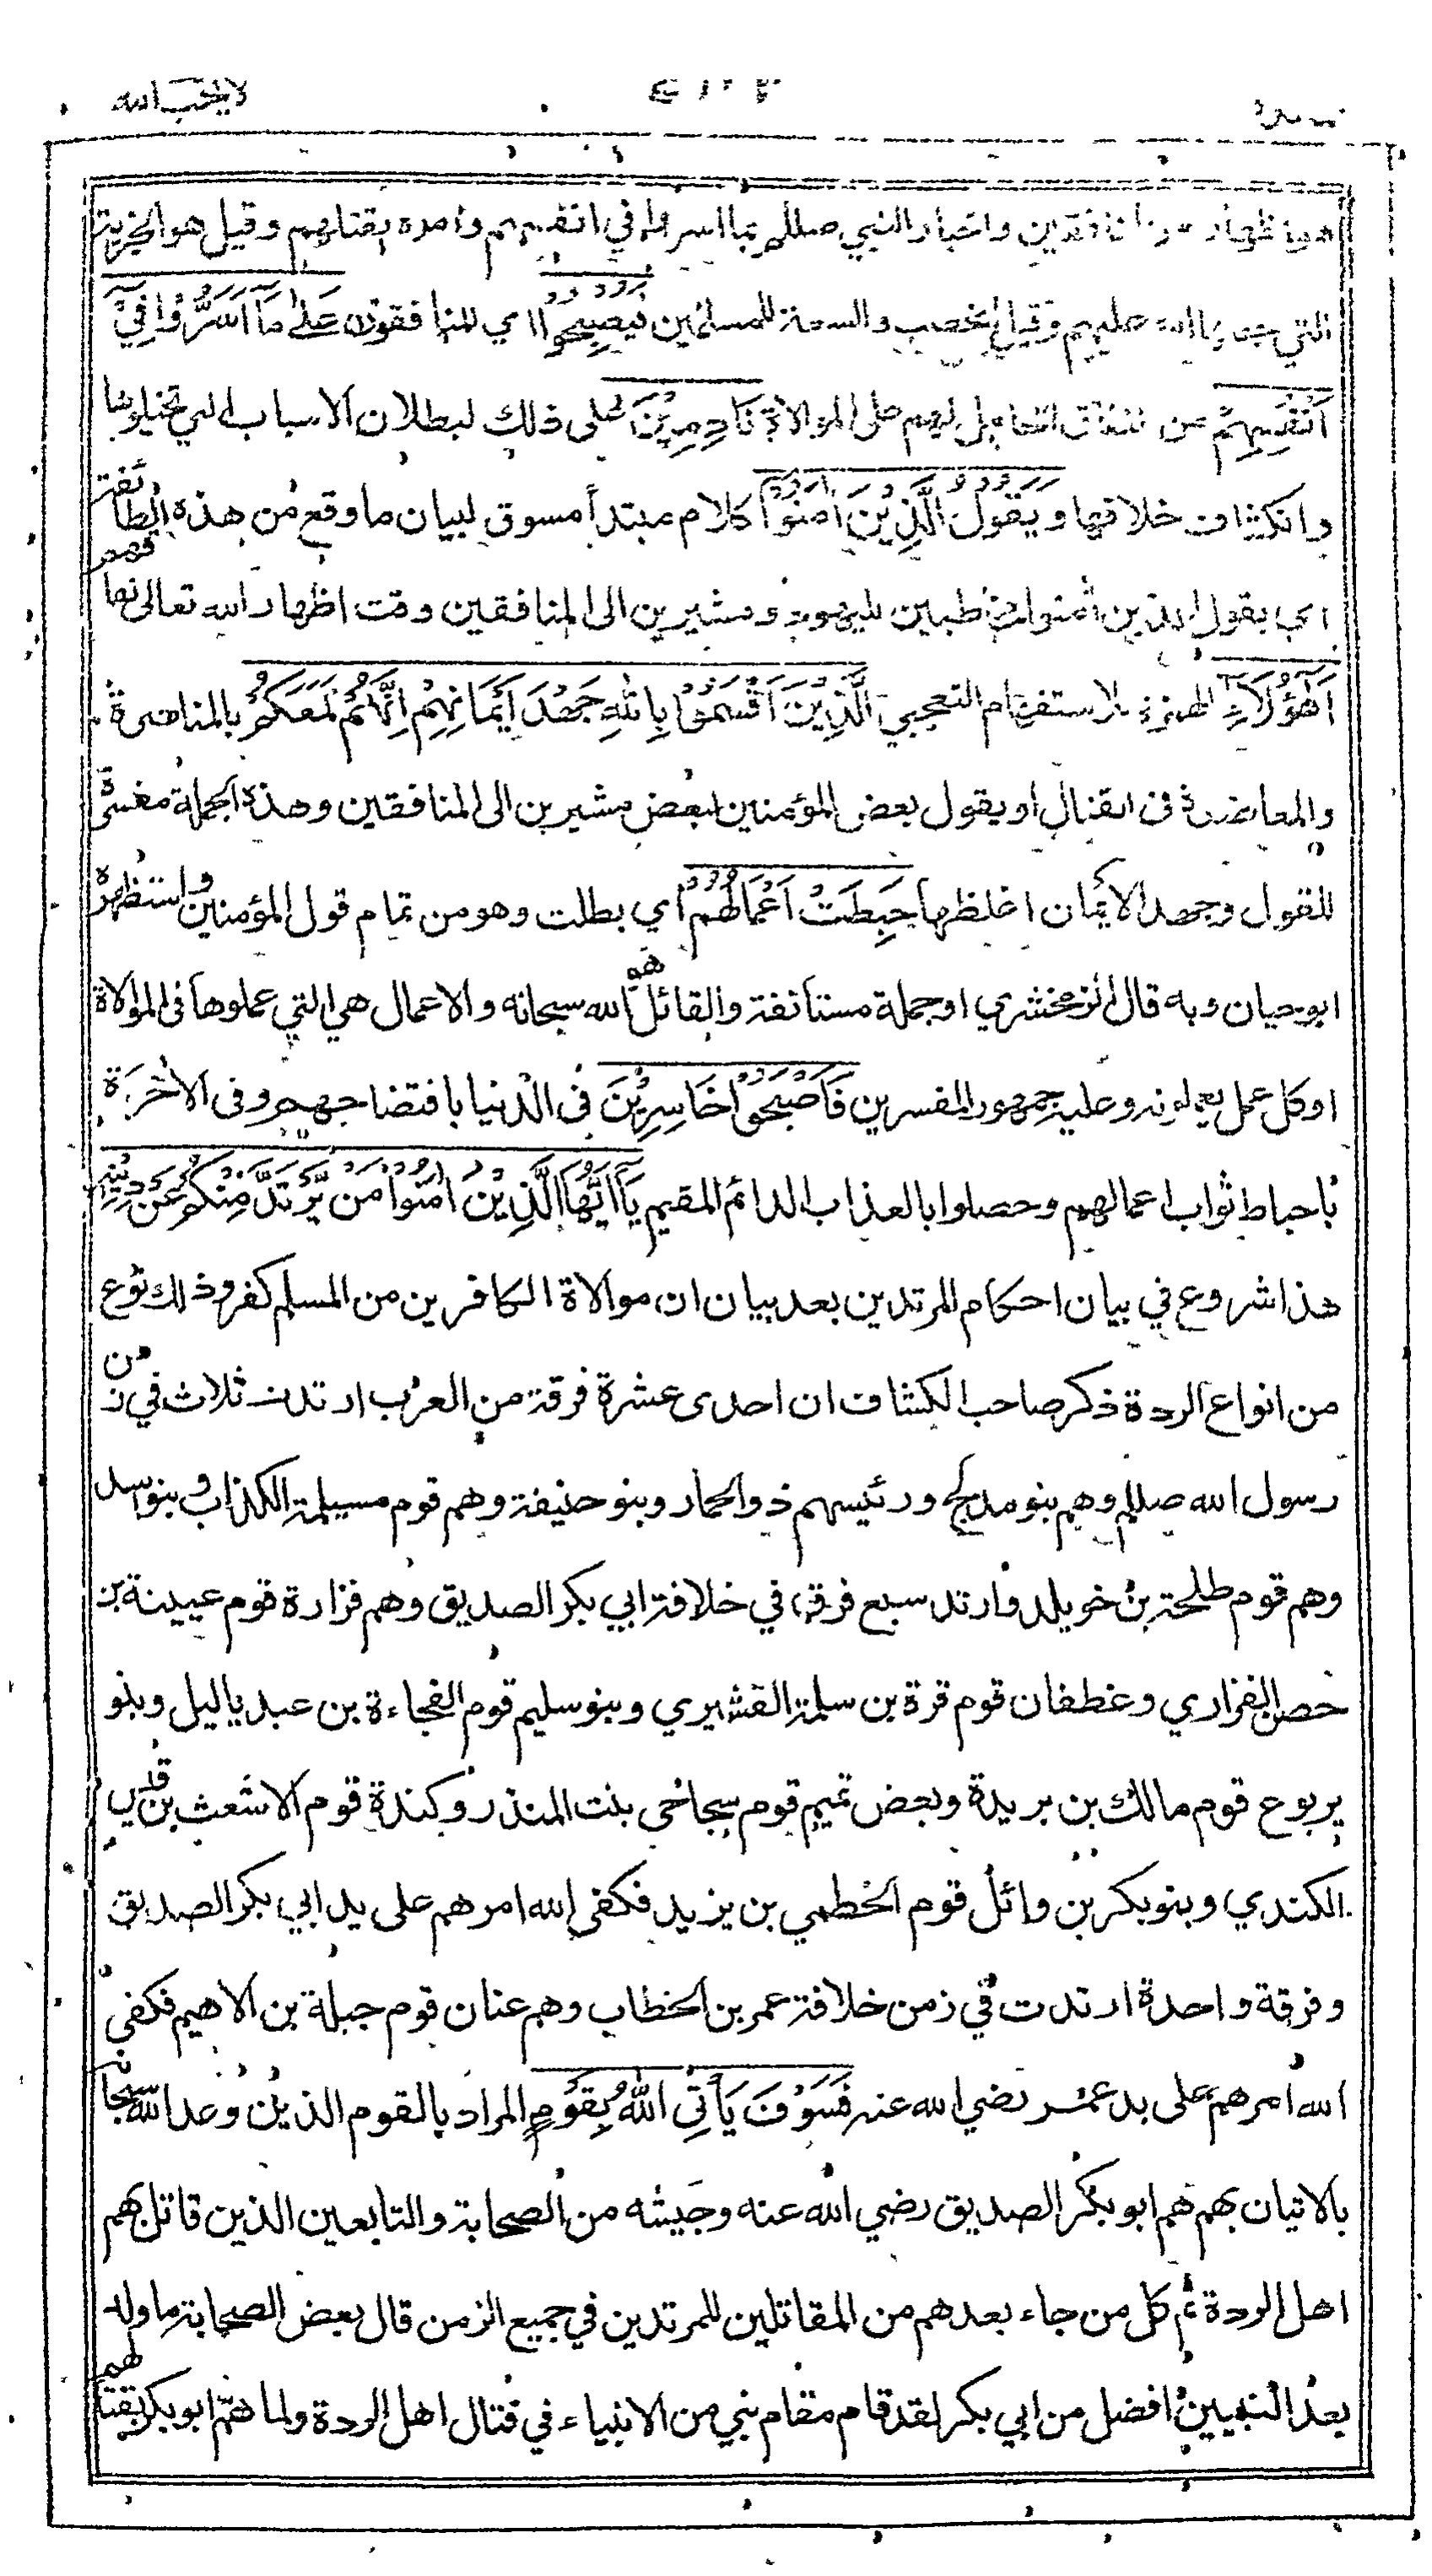 لا يحب الله
هو اظهار امر المنافقين واخبار النبي صللم بما اسروا في انفسهم وامره بقتلهم وقيل هو الجزية
التي جعلها الله عليهم وقيل الخصب والسعة للمسلمين فَيُصْبِحُوْا اي المنافقون عَلٰى مَا اَسَرُّوْا فِيْٓ
اَنْفُسِهِمْ من النفاق الحامل لهم على الموالاة نَادِمِيْنَ على ذلك لبطلان الاسباب التي تخيلوها
وانكشاف خلافها وَيَقُوْلُ الَّذِيْنَ اٰمَنُوْا كلام مبتدأ مسوق لبيان ما وقع من هذه الطائفة
اي يقول الذين اٰمنوا مخاطبين لليهود ومشيرين الى المنافقين وقت اظهار الله تعالى نفاقهم
اَهٰٓؤُلَآءِ الهمزة للاستفهام التعجبي الَّذِيْنَ اَقْسَمُوْا بِاللهِ جَهْدَ اَيْمَانِهِمْ اِنَّهُمْ لَمَعَكُمْ بالمناصرة
والمعاضدة في القتال او يقول بعض المؤمنين لبعض مشيرين الى المنافقين وهذه الجملة مفسرة
للقول وجهد الايمان اغلظها حَبِطَتْ اَعْمَالُهُمْ اي بطلت وهو من تمام قول المؤمنين واستظهره
ابو حيان وبه قال الزمخشري او جملة مستأنفة والقائل هو الله سبحانه والاعمال هي التي عملوها في الموالاة
او كل عمل يعملونه وعليه جمهور المفسرين فَاَصْبَحُوْا خَاسِرِيْنَ في الدنيا بافتضاحهم وفي الاٰخرة
باحباط ثواب اعمالهم وحصلوا بالعذاب الدائم المقيم يَآ اَيُّهَا الَّذِيْنَ اٰمَنُوْا مَنْ يَّرْتَدَّ مِنْكُمْ عَنْ دِيْنِهٖ
هذا شروع في بيان احكام المرتدين بعد بيان ان موالاة الكافرين من المسلم كفر وذلك نوع
من انواع الردة ذكر صاحب الكشاف ان احدى عشرة فرقة من العرب ارتدت ثلاث في زمن
رسول الله صللم وهم بنو مدلج ورئيسهم ذو الحمار وبنو حنيفة وهم قوم مسيلمة الكذاب وبنو اسد
وهم قوم طلحة بن خويلد وارتد سبع فرق في خلافة ابي بكر الصديق وهم فزارة قوم عيينة بن
حصن الفزاري وغطفان قوم قرة بن سلمة القشيري وبنو سليم قوم الفجاءة بن عبد ياليل وبنو
يربوع قوم مالك بن بريدة وبعض تميم قوم سجاحى بنت المنذر وكندة قوم الاشعث بن قيس
الكندي وبنو بكر بن وائل قوم الخطمي بن يزيد فكفى الله امرهم على يد ابي بكر الصديق
وفرقة واحدة ارتدت في زمن خلافة عمر بن الخطاب وهم عنان قوم جبلة بن الاهيم فكفى
الله امرهم على يد عمر رضي الله عنه فَسَوْفَ يَأْتِى اللهُ بِقَوْمٍ المراد بالقوم الذين وعد الله سبحانه
بالاتيان بهم هم ابو بكر الصديق رضي الله عنه وجيشه من الصحابة والتابعين الذين قاتل بهم
اهل الردة ثم كل من جاء بعدهم من المقاتلين للمرتدين في جميع الزمن قال بعض الصحابة ما ولد
بعد النبيين افضل من ابي بكر لقد قام مقام نبي من الانبياء في قتال اهل الردة ولما همّ ابو بكر بقتالهم